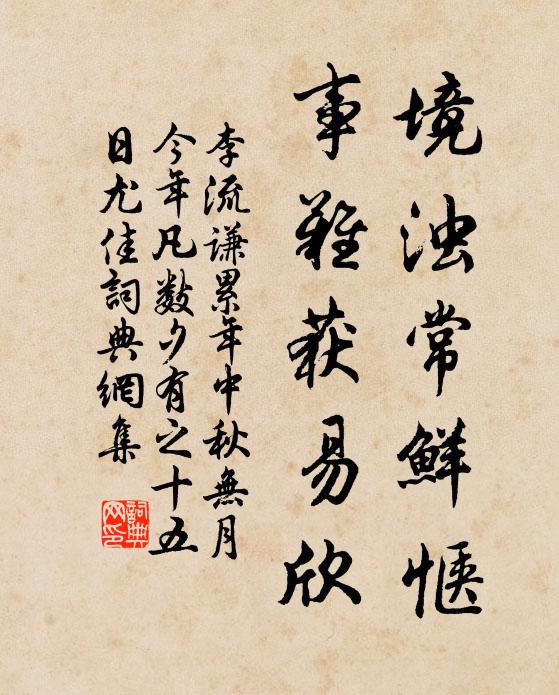 境浊常鮮愜
事難获易欣
李流谦累年中秋無月
今年凡数夕有之十五
日尤佳詞典網集
詞典网印